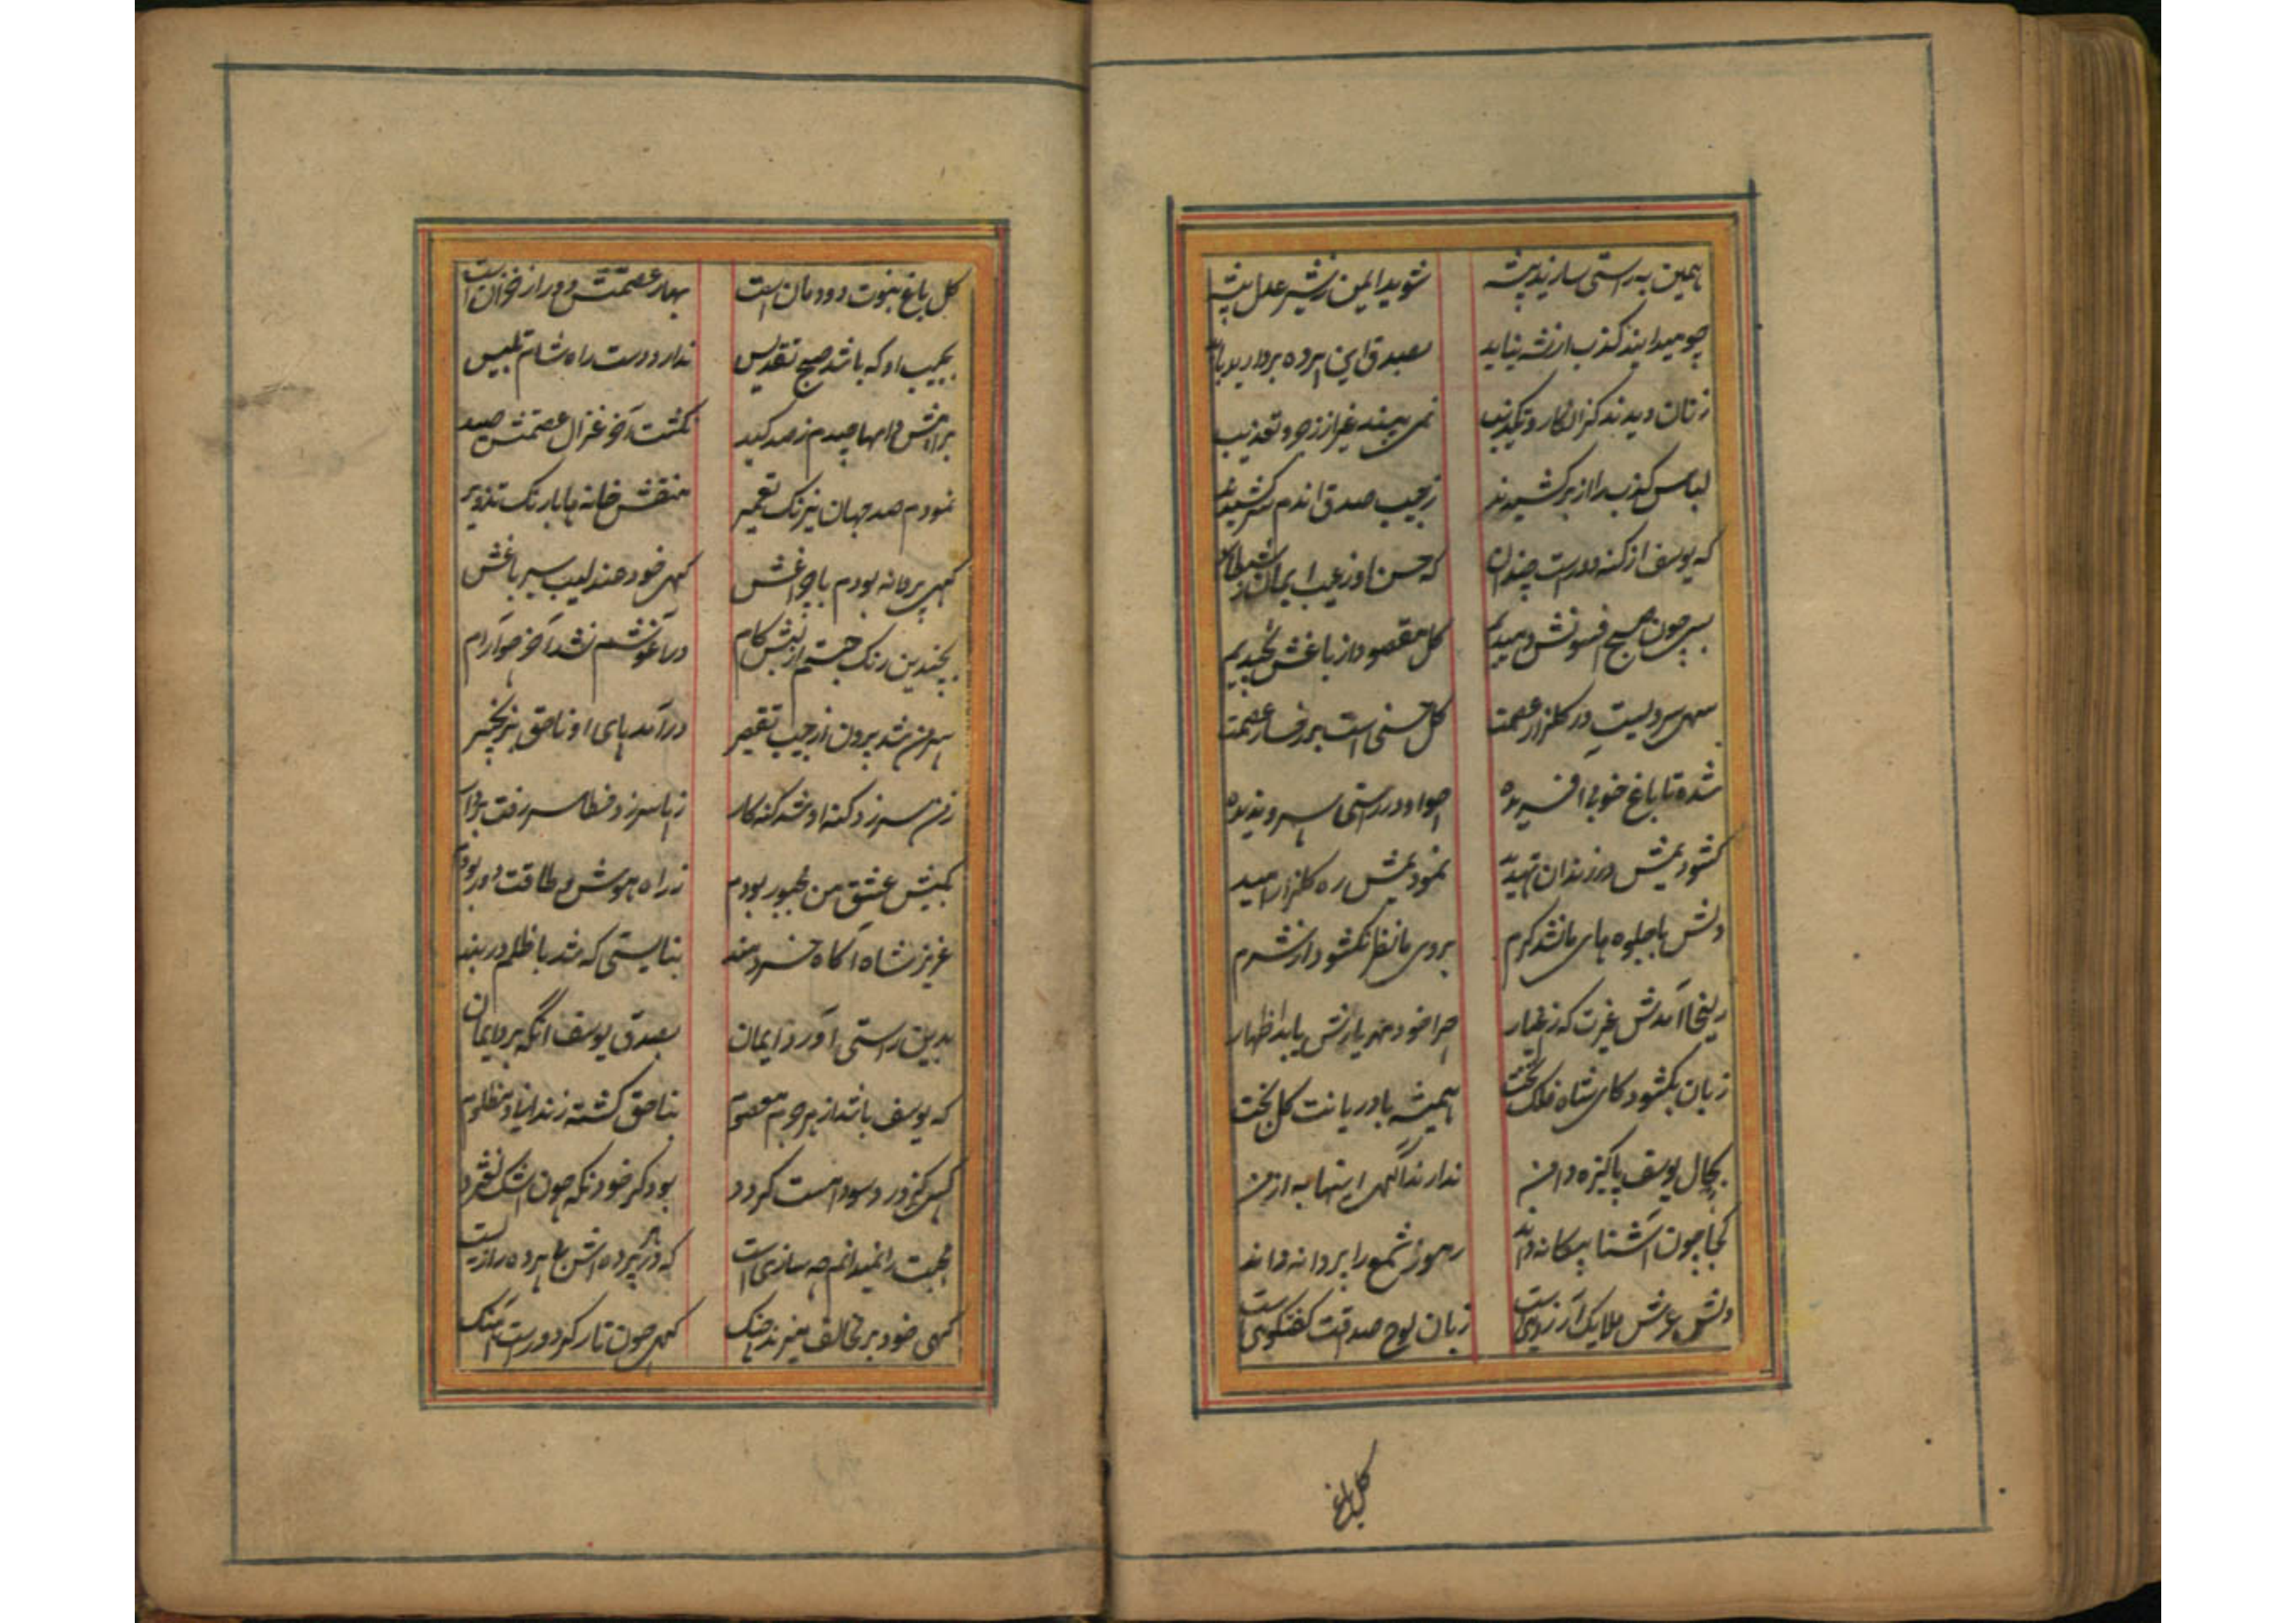 همین به راستی سازید پیشه شوید ایمن ز شیر عدل پیشه
چو میدانید کذب از نشه نیاید بصدق این پرده بردارید باید
زنان دیدند کز انکار و تکذیب نمی بینند غیر از زجر و تعذیب
لباس کذب را از بر کشیدند ز جیب صدق اندم سر کشیدند
که یوسف از کنه دورست چندان که حسن او ز عیب ایمان ز شیطان
بسی چون صبح افسونش دمیدیم کل مقصود از باغش نچیدیم
سهی سرویست در کلزار عصمت کل حسنی است بر رخسار عصمت
شده تا باغ خوبی افریده چو او در راستی سروی ندیده
کشودیمش در زندان تهدید نمودیمش ره کلزار امید
دلش با جلوه های ما نشد کرم بروی ما نظر نکشود از شرم
زلیخا آمدش غیرت که ز اغیار چرا خود مهر یارش یابد اظهار
زبان بکشود کای شاه فلک تخت همیشه باد ریانت کل بخت
بحال یوسف پاکیزه دامن ندارند آکهی اینها به از من
کجا چون آشنا بیکانه داند رموز شمع را پروانه داند
دلش عرش ملایک آرزوئی است زبان لوح صداقت کفتکوئی است
کل باغ
کل باغ نبوت دودمان است بهار عصمتش دور از خزان است
بجیب او که باشد صبح تقدیس ندارد دست راه شام تلبیس
براهش دامها چیدم ز صد کید نکشت آخر غزال عصمتش صید
نمودم صد جهان نیرنک تعمیر منقش خانه ها با رنک تزویر
کهی پروانه بودم با چراغش کهی خود عندلیب سیر باغش
بچندین رنک جستم از لبش کام در آغوشم نشد آخر چو آرام
سر من شد برون از جیب تقصیر در آمد پای او ناحق بزنجیر
ز من سر زد کنه او شد کنه کار ز پا سر زد خطا سر رفت بر دار
بکیش عشق من مجبور بودم ز راه هوش و طاقت دور بودم
عزیز شاه آکاه خردمند بنایستی که شد با ظلم در بند
بدین راستی آورد ایمان بصدق یوسف آنکه برد ایمان
که یوسف باشد از هر جرم معصوم بناحق کشته زندانی و مظلوم
کسی کز درد سودا مست کردد بود کر خود نکه چون اشک لغزد
محبت را نمیدانم چه سازی است که در هر پرده اش با پرده رازیست
کهی خود بر مخالف میزند چنک کهی چون تار کردد راست آهنک